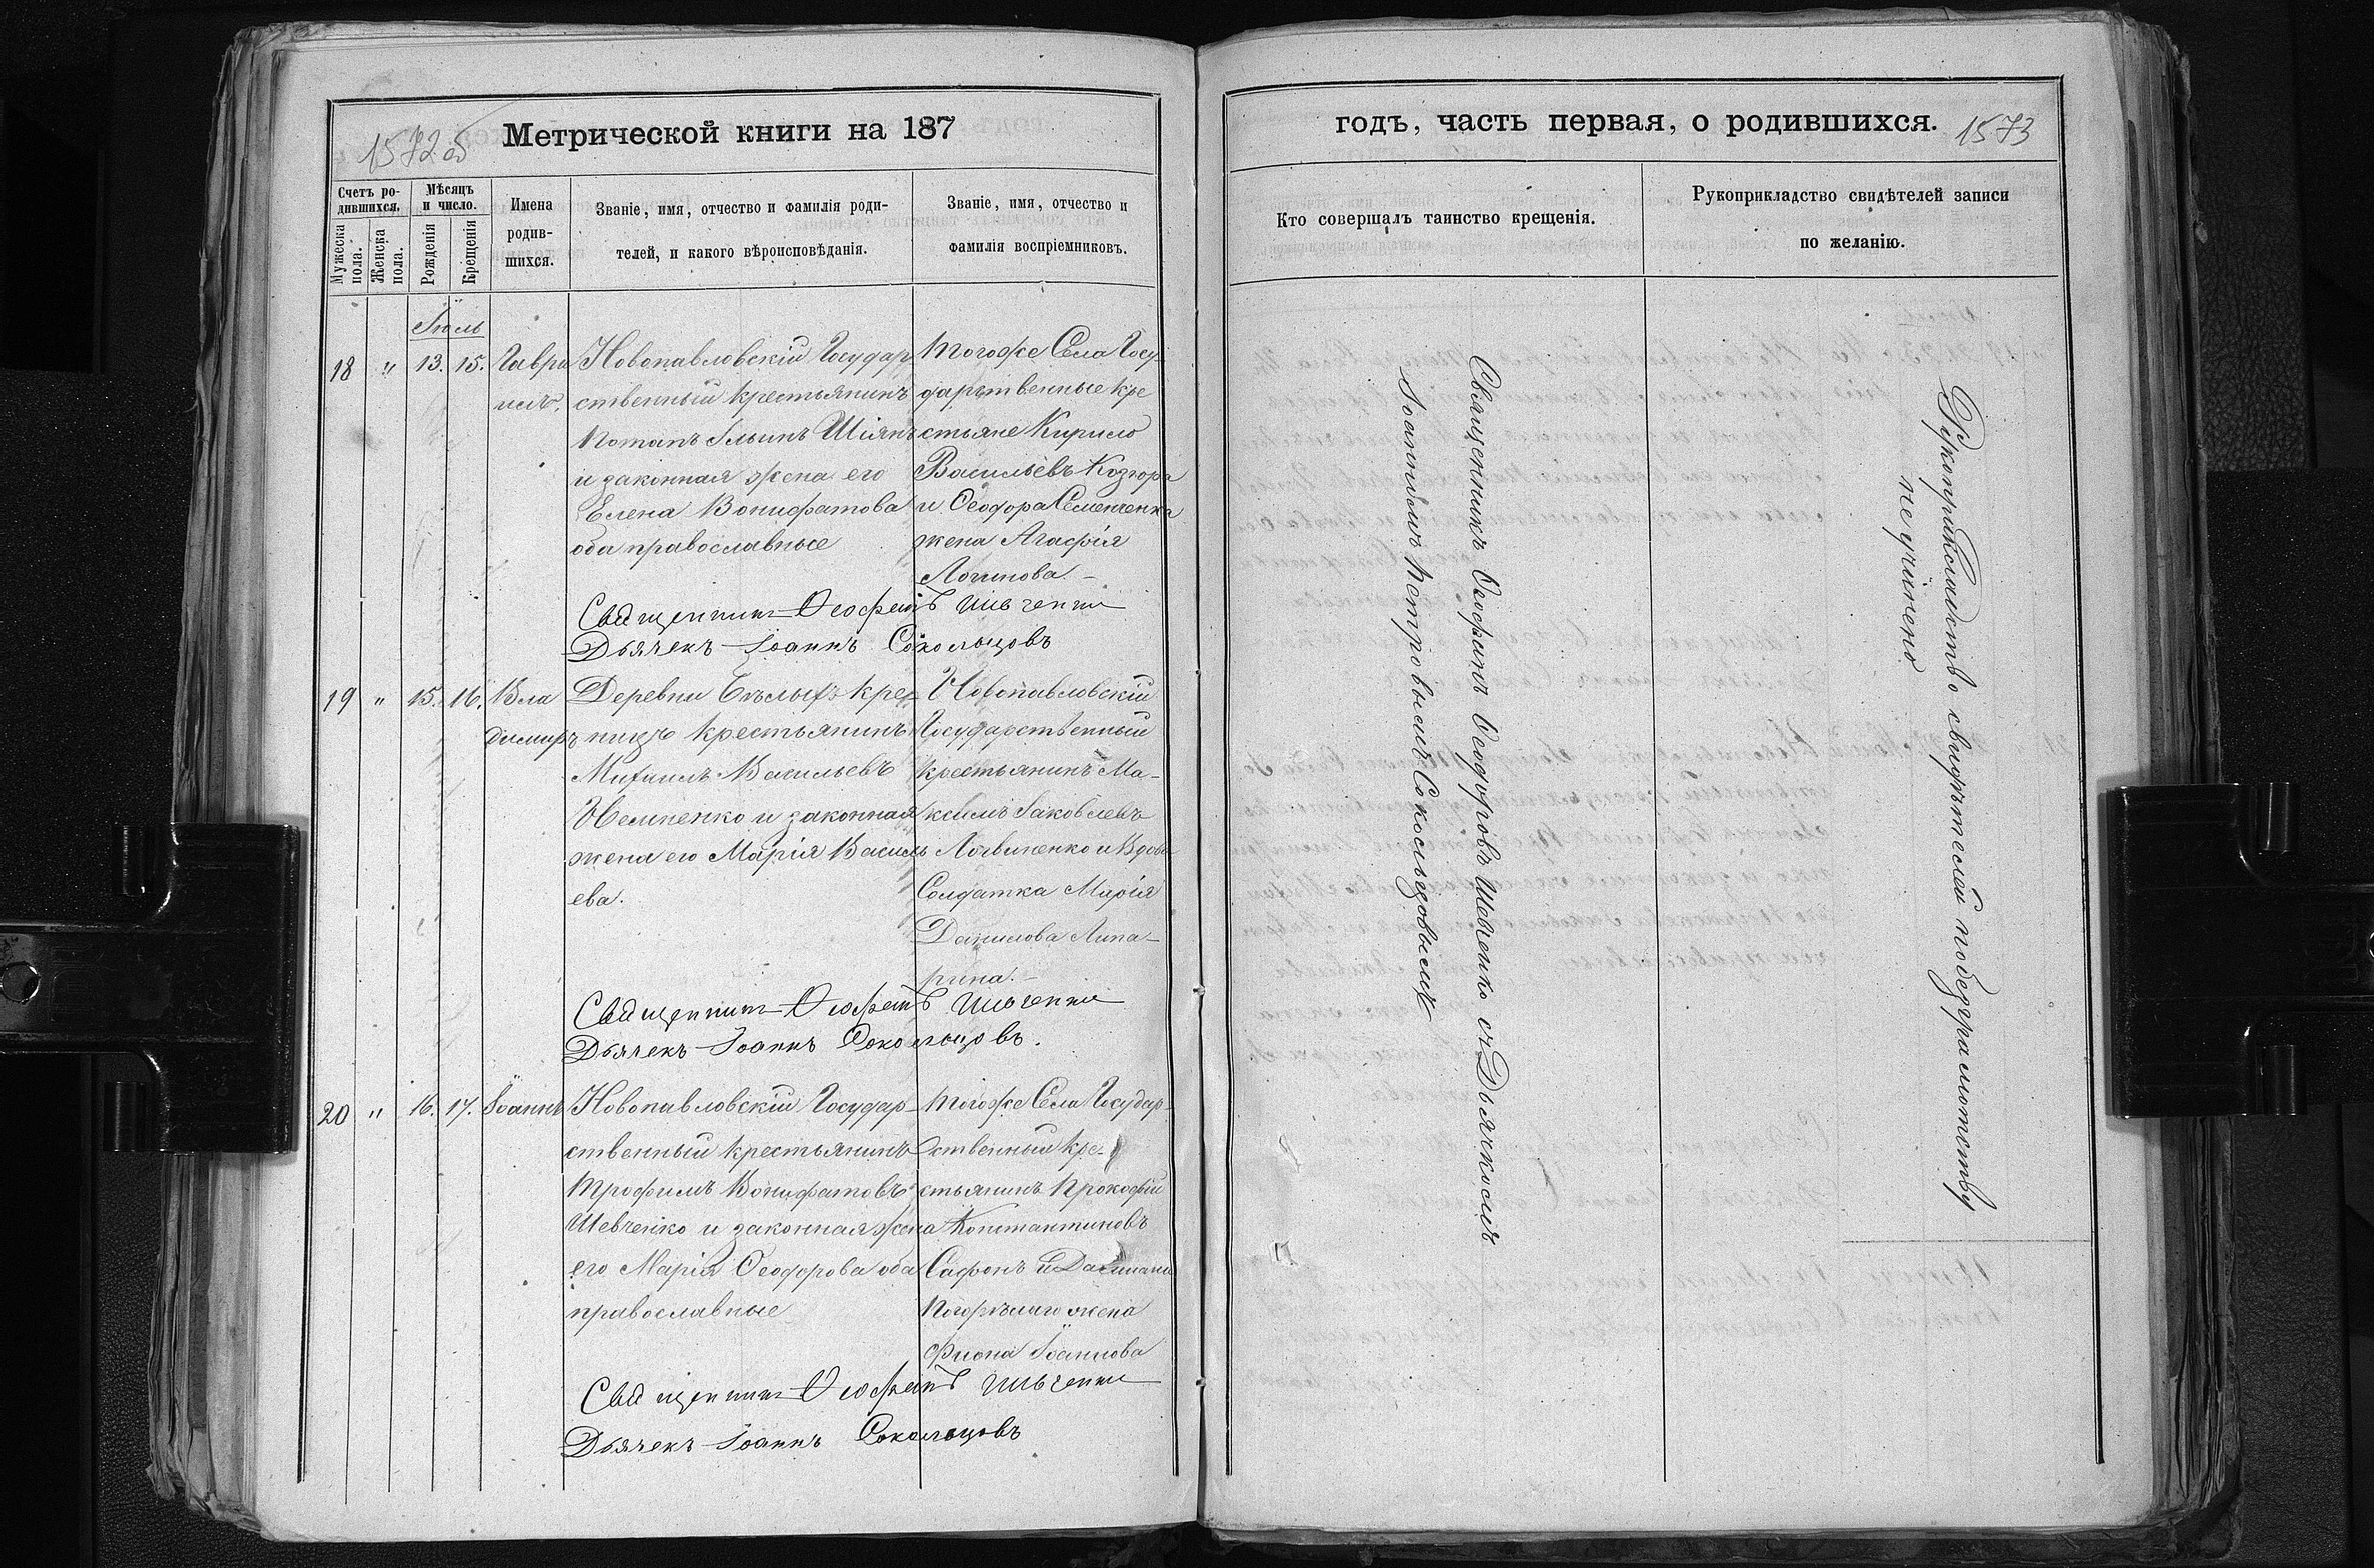 1572 об
Метрической книги на 187
Счетъ ро-
дившихся.
Мѣсяцъ
и число.
Мужеска
пола.
Женска
пола.
Рожденія
Крещенія
Имена
родив-
шихся.
Званіе, имя, отчество и фамилія роди-
телей, и какого вѣроисповѣданія.
Званіе, имя, отчество и
фамилія воспріемниковъ.
Іюль
18 " 13. 15.
Гаври
илъ.
Новопавловскій Государ
ственный крестьянинъ
Потапъ Ильинъ Шіянъ
и законная жена его
Елена Вонифатова
оба православные
Тогоже Села Госу
дарственные кре
стьяне Кирило
Васильевъ Козюра
и Ѳеодора Семенченка
жена Агафія
Логинова.
Священникъ Ѳеофанъ Шевченко
Дьячекъ Іоаннъ Сокольцовъ
19 " 15. 16.
Вла
димиръ
Деревни Бѣлыхъ кре
ницъ крестьянинъ
Михаилъ Васильевъ
и законная
жена его Марія Василь
ева.
Новопавловскій
Государственный
крестьянинъ Ма-
ксимъ Іаковлевъ
Логвиненко и Вдова
Солдатка Марія
Данилова Липа-
рина.
Священникъ Ѳеофанъ Шевченко
Дьячекъ Іоаннъ Сокольцовъ.
20 " 16. 17.
Іоаннъ
Новопавловскій Государ-
ственный крестьянинъ
Трофимъ Вонифатовъ
Шевченко и законная жена
его Марія Ѳеодорова оба
православные
Тогоже Села Государ-
ственный кре-
стьянинъ Прокофій
Константиновъ
Сафонъ и
Погорѣлаго жена
Іоаннова
Священникъ Ѳеофанъ Шевченко
Дьячекъ Іоаннъ Сокольцовъ
годъ, часть первая, о родившихся.
1573
Кто совершалъ таинство крещенія.
Рукоприкладство свидѣтелей записи
по желанію.
Священникъ Ѳеофанъ Ѳеодоровъ Шевченко съ Дьячкомъ
Іоанномъ Петровымъ Сокольцовымъ
Рукоприкладство свидѣтелей по безграмотству
не учинено